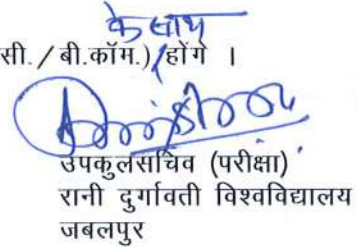 के साथ
सी. / बी.कॉम.) होंगे ।
उपकुलसचिव (परीक्षा)
रानी दुर्गावती विश्वविद्यालय
जबलपुर